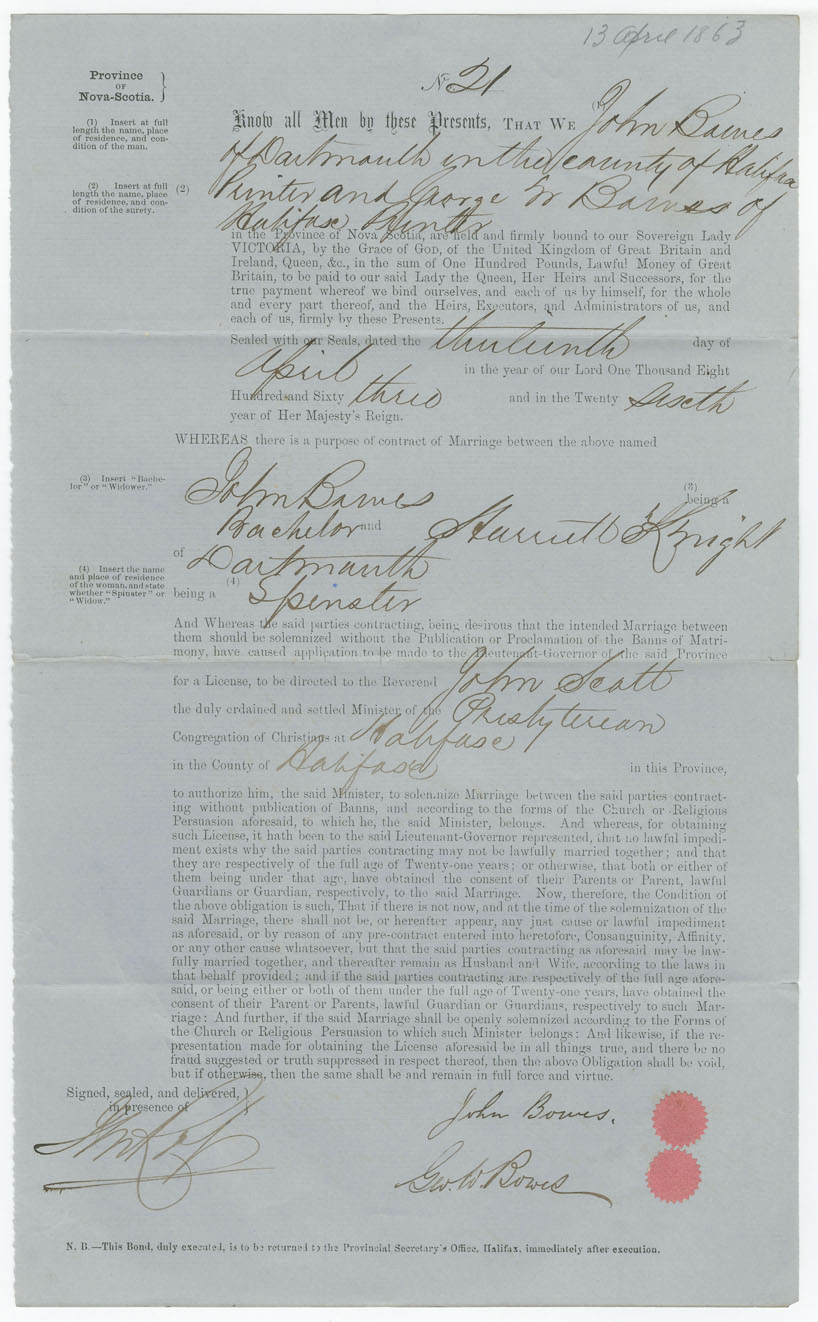 13 April 1863
Province
OF
Nova-Scotia.
No 21
(1) Insert at full
length the name, place
of residence, and con-
dition of the man.
Know all Men by these Presents, THAT WE John Bowes
of Dartmouth in the county of Halifax
(2) Insert at full
length the name, place
of residence, and con-
dition of the surety.
(2) Printer and George W Bowes of
Halifax Printer
in the Province of Nova Scotia, are held and firmly bound to our Sovereign Lady
VICTORIA, by the Grace of GOD, of the United Kingdom of Great Britain and
Ireland, Queen, &c., in the sum of One Hundred Pounds, Lawful Money of Great
Britain, to be paid to our said Lady the Queen, Her Heirs and Successors, for the
true payment whereof we bind ourselves, and each of us by himself, for the whole
and every part thereof, and the Heirs, Executors, and Administrators of us, and
each of us, firmly by these Presents.
Sealed with our Seals, dated the thirteenth day of
April in the year of our Lord One Thousand Eight
Hundred and Sixty three and in the Twenty sixth
year of Her Majesty's Reign.
WHEREAS there is a purpose of contract of Marriage between the above named
(3) Insert "Bache-
lor" or "Widower."
John Bowes (3) being a
Bachelor and Harriett Knight
of Dartmouth
(4) Insert the name
and place of residence
of the woman, and state
whether "Spinster" or
"Widow."
being a (4) Spinster
And Whereas the said parties contracting, being desirous that the intended Marriage between
them should be solemnized without the Publication or Proclamation of the Banns of Matri-
mony, have caused application to be made to the Lieutenant-Governor of the said Province
for a License, to be directed to the Reverend John Scott
the duly ordained and settled Minister of the Presbyterian
Congregation of Christians at Halifax
in the County of Halifax in this Province,
to authorize him, the said Minister, to solemnize Marriage between the said parties contract-
ing without publication of Banns, and according to the forms of the Church or Religious
Persuasion aforesaid, to which he, the said Minister, belongs. And whereas, for obtaining
such License, it hath been to the said Lieutenant-Governor represented, that no lawful impedi-
ment exists why the said parties contracting may not be lawfully married together; and that
they are respectively of the full age of Twenty-one years; or otherwise, that both or either of
them being under that age, have obtained the consent of their Parents or Parent, lawful
Guardians or Guardian, respectively, to the said Marriage. Now, therefore, the Condition of
the above obligation is such, That if there is not now, and at the time of the solemnization of the
said Marriage, there shall not be, or hereafter appear, any just cause or lawful impediment
as aforesaid, or by reason of any pre-contract entered into heretofore, Consanguinity, Affinity,
or any other cause whatsoever, but that the said parties contracting as aforesaid may be law-
fully married together, and thereafter remain as Husband and Wife, according to the laws in
that behalf provided; and if the said parties contracting are respectively of the full age afore-
said, or being either or both of them under the full age of Twenty-one years, have obtained the
consent of their Parent or Parents, lawful Guardian or Guardians, respectively to such Mar-
riage: And further, if the said Marriage shall be openly solemnized according to the Forms of
the Church or Religious Persuasion to which such Minister belongs: And likewise, if the re-
presentation made for obtaining the License aforesaid be in all things true, and there be no
fraud suggested or truth suppressed in respect thereof, then the above Obligation shall be void,
but if otherwise, then the same shall be and remain in full force and virtue.
Signed, sealed, and delivered,
in presence of
John Bowes.
Geo. W. Bowes
N. B.—This Bond, duly executed, is to be returned to the Provincial Secretary's Office, Halifax, immediately after execution.